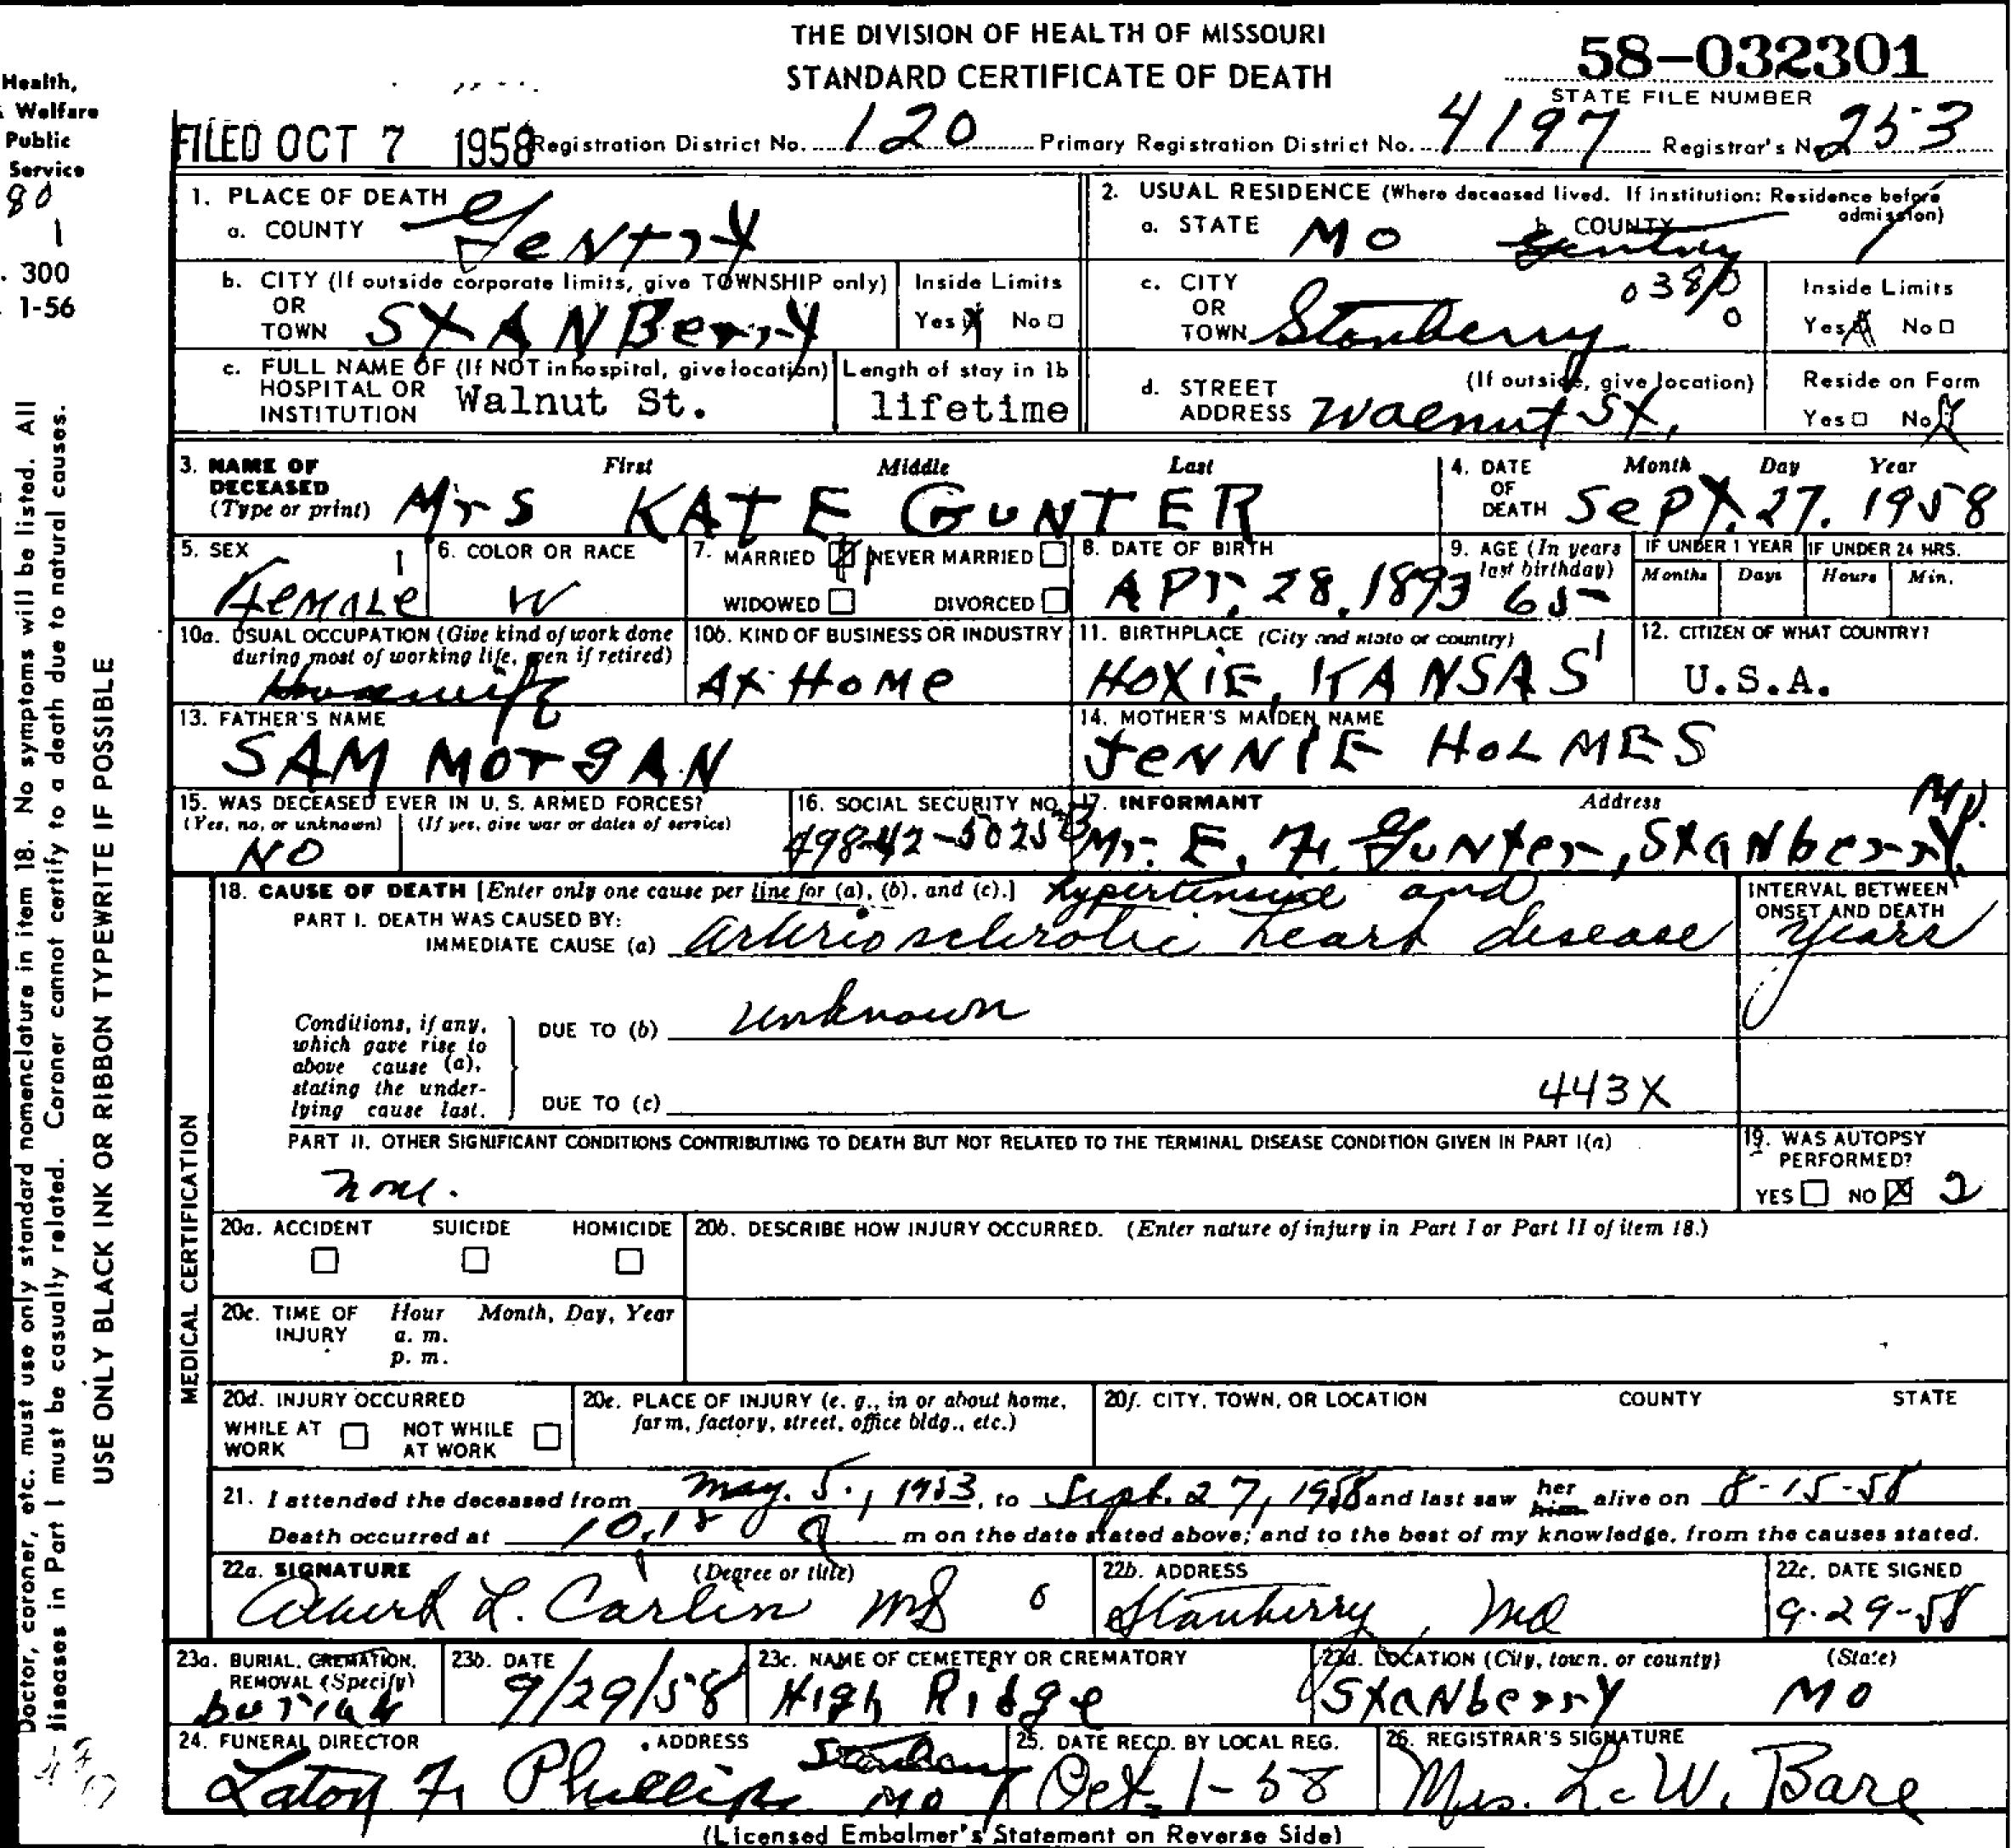 THE DIVISION OF HEALTH OF MISSOURI
STANDARD CERTIFICATE OF DEATH
58-032301
STATE FILE NUMBER
FILED OCT 7 1958 Registration District No. 120 Primary Registration District No. 4197 Registrar's No. 253
Health,
& Welfare
Public
Service
80
1
300
1-56
1. PLACE OF DEATH
a. COUNTY Gentry
2. USUAL RESIDENCE (Where deceased lived. If institution: Residence before admission)
a. STATE MO b. COUNTY Gentry
b. CITY (If outside corporate limits, give TOWNSHIP only) OR TOWN STANBerry
Inside Limits Yes X No
c. CITY OR TOWN Stanberry 0380 0
Inside Limits Yes X No
c. FULL NAME OF (If NOT in hospital, give location) HOSPITAL OR INSTITUTION Walnut St.
Length of stay in 1b lifetime
d. STREET ADDRESS (If outside, give location) Walnut St.
Reside on Farm Yes No X
3. NAME OF DECEASED (Type or print) First Middle Last
Mrs KATE GUNTER
4. DATE OF DEATH Month Day Year
Sept. 27. 1958
5. SEX Female 1
6. COLOR OR RACE W
7. MARRIED X NEVER MARRIED
WIDOWED DIVORCED
8. DATE OF BIRTH Apr. 28. 1893
9. AGE (In years last birthday) 65
IF UNDER 1 YEAR Months Days
IF UNDER 24 HRS. Hours Min.
10a. USUAL OCCUPATION (Give kind of work done during most of working life, even if retired) Housewife
10b. KIND OF BUSINESS OR INDUSTRY At Home
11. BIRTHPLACE (City and state or country) HOXIE, KANSAS 1
12. CITIZEN OF WHAT COUNTRY? U.S.A.
13. FATHER'S NAME SAM MORGAN
14. MOTHER'S MAIDEN NAME JENNIE HOLMES
15. WAS DECEASED EVER IN U. S. ARMED FORCES?
(Yes, no, or unknown) (If yes, give war or dates of service)
NO
16. SOCIAL SECURITY NO. 498-42-5025
17. INFORMANT Address
Mr. E. H. Gunter, Stanberry, Mo.
MEDICAL CERTIFICATION
18. CAUSE OF DEATH [Enter only one cause per line for (a), (b), and (c).]
PART I. DEATH WAS CAUSED BY:
IMMEDIATE CAUSE (a) hypertensive and
Arteriosclerotic heart disease
INTERVAL BETWEEN ONSET AND DEATH years
Conditions, if any, which gave rise to above cause (a), stating the underlying cause last.
DUE TO (b) unknown
DUE TO (c) 443X
PART II. OTHER SIGNIFICANT CONDITIONS CONTRIBUTING TO DEATH BUT NOT RELATED TO THE TERMINAL DISEASE CONDITION GIVEN IN PART I(a)
none.
19. WAS AUTOPSY PERFORMED?
YES NO X 2
20a. ACCIDENT SUICIDE HOMICIDE
20b. DESCRIBE HOW INJURY OCCURRED. (Enter nature of injury in Part I or Part II of item 18.)
20c. TIME OF INJURY Hour Month, Day, Year
a. m.
p. m.
20d. INJURY OCCURRED
WHILE AT WORK NOT WHILE AT WORK
20e. PLACE OF INJURY (e. g., in or about home, farm, factory, street, office bldg., etc.)
20f. CITY, TOWN, OR LOCATION COUNTY STATE
21. I attended the deceased from May. 5., 1953, to Sept. 27, 1958 and last saw her him alive on 8-15-58
Death occurred at 10:18 a m on the date stated above; and to the best of my knowledge, from the causes stated.
22a. SIGNATURE (Degree or title)
Albert L. Carlin MD 6
22b. ADDRESS Stanberry, Mo
22c. DATE SIGNED 9-29-58
23a. BURIAL, CREMATION, REMOVAL (Specify) burial
23b. DATE 9/29/58
23c. NAME OF CEMETERY OR CREMATORY High Ridge
23d. LOCATION (City, town, or county) (State)
Stanberry MO
24. FUNERAL DIRECTOR ADDRESS
Laton F. Phillips Stanberry Mo
25. DATE RECD. BY LOCAL REG. Oct. 1-58
26. REGISTRAR'S SIGNATURE Mrs. L. W. Bare
(Licensed Embalmer's Statement on Reverse Side)
Doctor, coroner, etc. must use only standard nomenclature in item 18. No symptoms will be listed. All
diseases in Part I must be casually related. Coroner cannot certify to a death due to natural causes.
USE ONLY BLACK INK OR RIBBON TYPEWRITE IF POSSIBLE